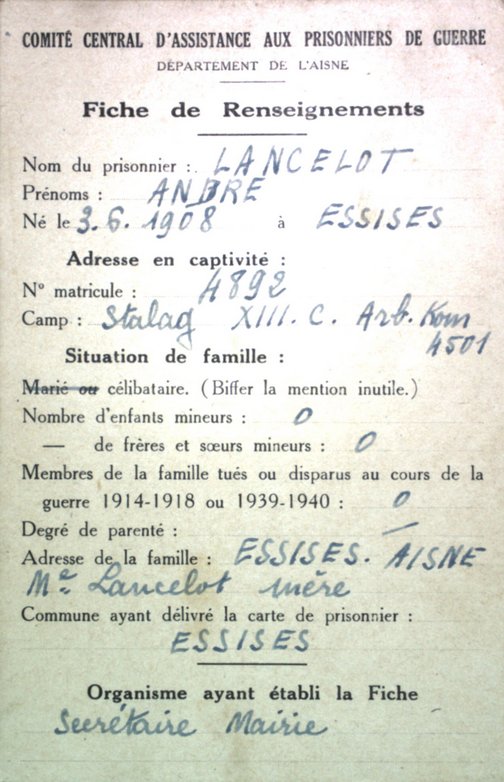 COMITÉ CENTRAL D'ASSISTANCE AUX PRISONNIERS DE GUERRE
DÉPARTEMENT DE L'AISNE
Fiche de Renseignements
Nom du prisonnier : LANCELOT
Prénoms : ANDRE
Né le 3.6.1908 à ESSISES
Adresse en captivité :
N° matricule : 4892
Camp : Stalag XIII.C. Arb. Kom
4501
Situation de famille :
Marié ou célibataire. (Biffer la mention inutile.)
Nombre d'enfants mineurs : 0
— de frères et sœurs mineurs : 0
Membres de la famille tués ou disparus au cours de la
guerre 1914-1918 ou 1939-1940 : 0
Degré de parenté : —
Adresse de la famille : ESSISES. AISNE
Me Lancelot mère
Commune ayant délivré la carte de prisonnier :
ESSISES
Organisme ayant établi la Fiche
Secrétaire Mairie